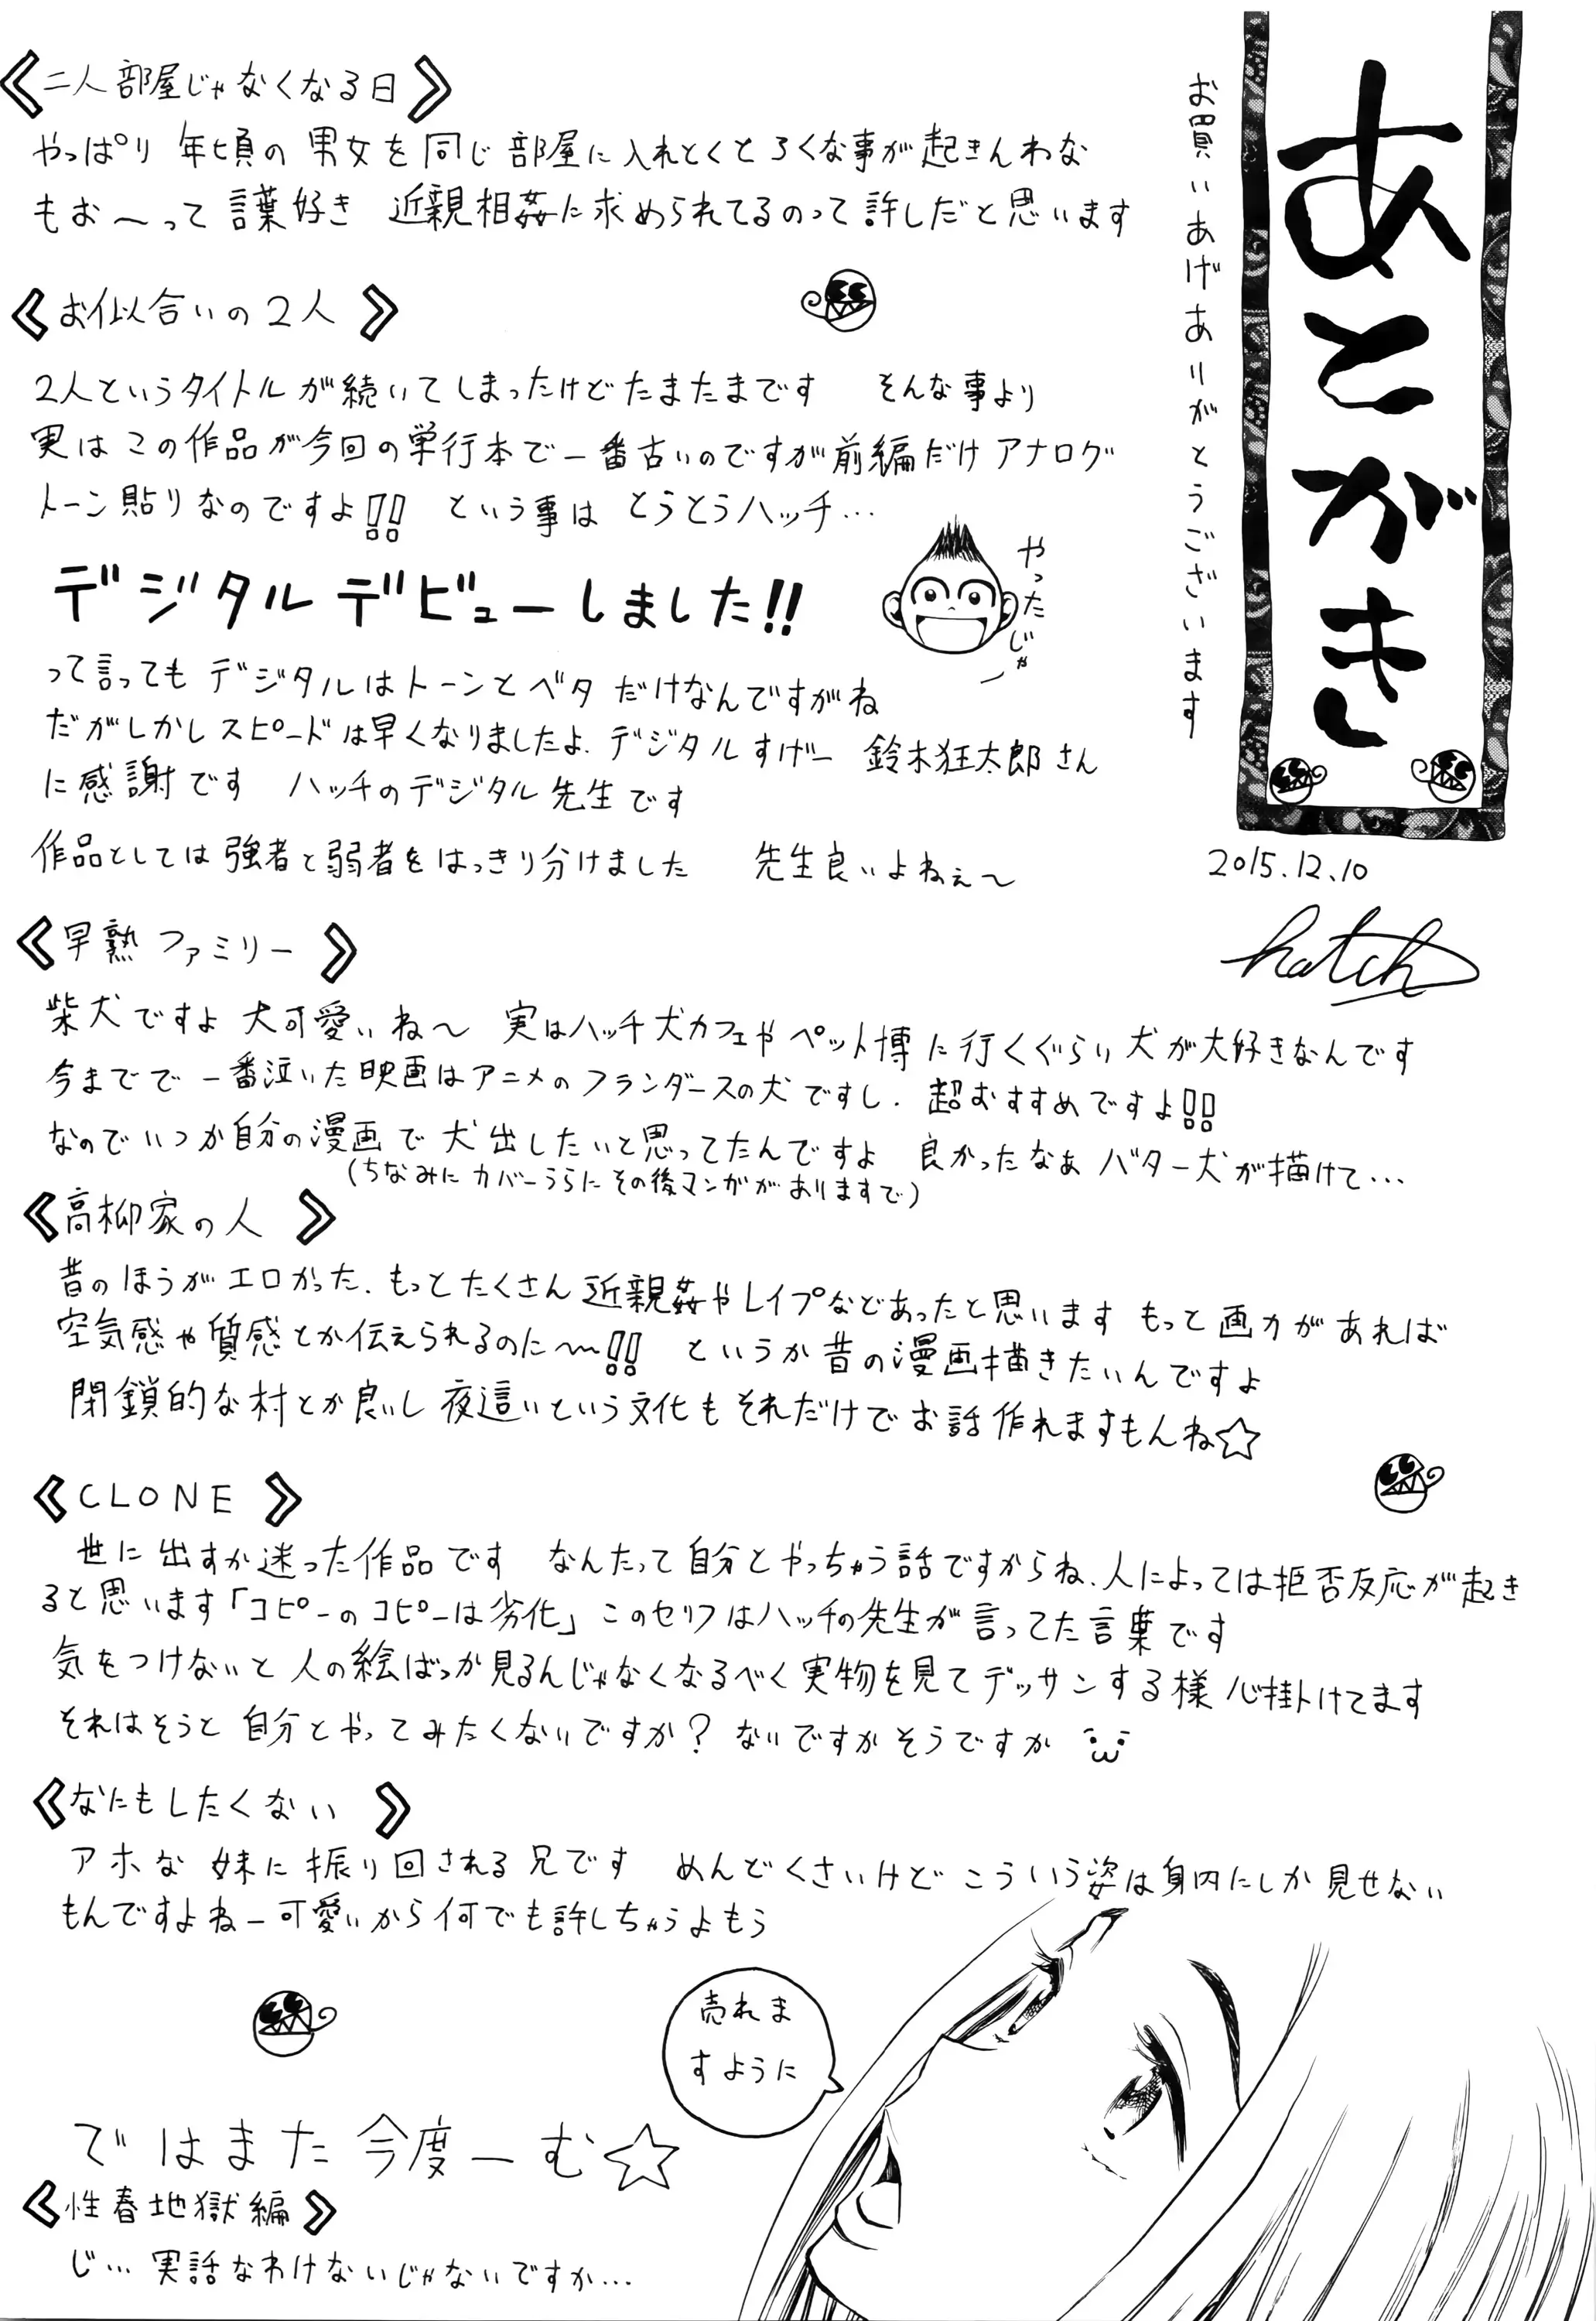 あとがき
お買いあげありがとうございます
2015.12.10
hatch
《二人部屋じゃなくなる日》
やっぱり 年頃の 男女を 同じ 部屋に 入れとくと ろくな事が起きんわな
もお〜って 言葉好き 近親相姦に求められてるのって 許しだと思います
《お似合いの2人》
2人というタイトルが続いてしまったけどたまたまです そんな事より
実はこの作品が今回の単行本で一番古いのですが前編だけアナログ
トーン貼りなのですよ!! という事は とうとうハッチ…
デジタルデビューしました!!
やったじゃー
って言っても デジタルはトーンとベタ だけなんですがね
だがしかしスピードは早くなりましたよ、デジタルすげー 鈴木狂太郎さん
に感謝です ハッチのデジタル先生です
作品としては強者と弱者をはっきり分けました 先生良いよねぇ〜
《早熟ファミリー》
柴犬ですよ 犬可愛いね〜 実はハッチ犬カフェやペット博に行くぐらい犬が大好きなんです
今までで一番泣いた映画はアニメのフランダースの犬ですし、超おすすめですよ!!
なのでいつか自分の漫画で犬出したいと思ってたんですよ 良かったなぁ バター犬が描けて…
(ちなみにカバーうらにその後マンガがありますで)
《高柳家の人》
昔のほうがエロかった、もっとたくさん近親姦やレイプなどあったと思います もっと画力があれば
空気感や質感とか伝えられるのに〜!! というか昔の漫画描きたいんですよ
閉鎖的な村とか良いし 夜這いという文化もそれだけでお話作れますもんね☆
《CLONE》
世に出すか迷った作品です なんたって自分とやっちゃう話ですからね、人によっては拒否反応が起き
ると思います「コピーのコピーは劣化」このセリフはハッチの先生が言ってた言葉です
気をつけないと人の絵ばっか見るんじゃなくなるべく実物を見てデッサンする様心掛けてます
それはそうと 自分とやってみたくないですか? ないですかそうですか
《なにもしたくない》
アホな 妹に 振り回される 兄です めんどくさいけど こういう姿は身内にしか見せない
もんですよねー可愛いから何でも許しちゃうよもう
売れま
すように
ではまた今度ーむ☆
《性春地獄編》
じ… 実話なわけないじゃないですか…